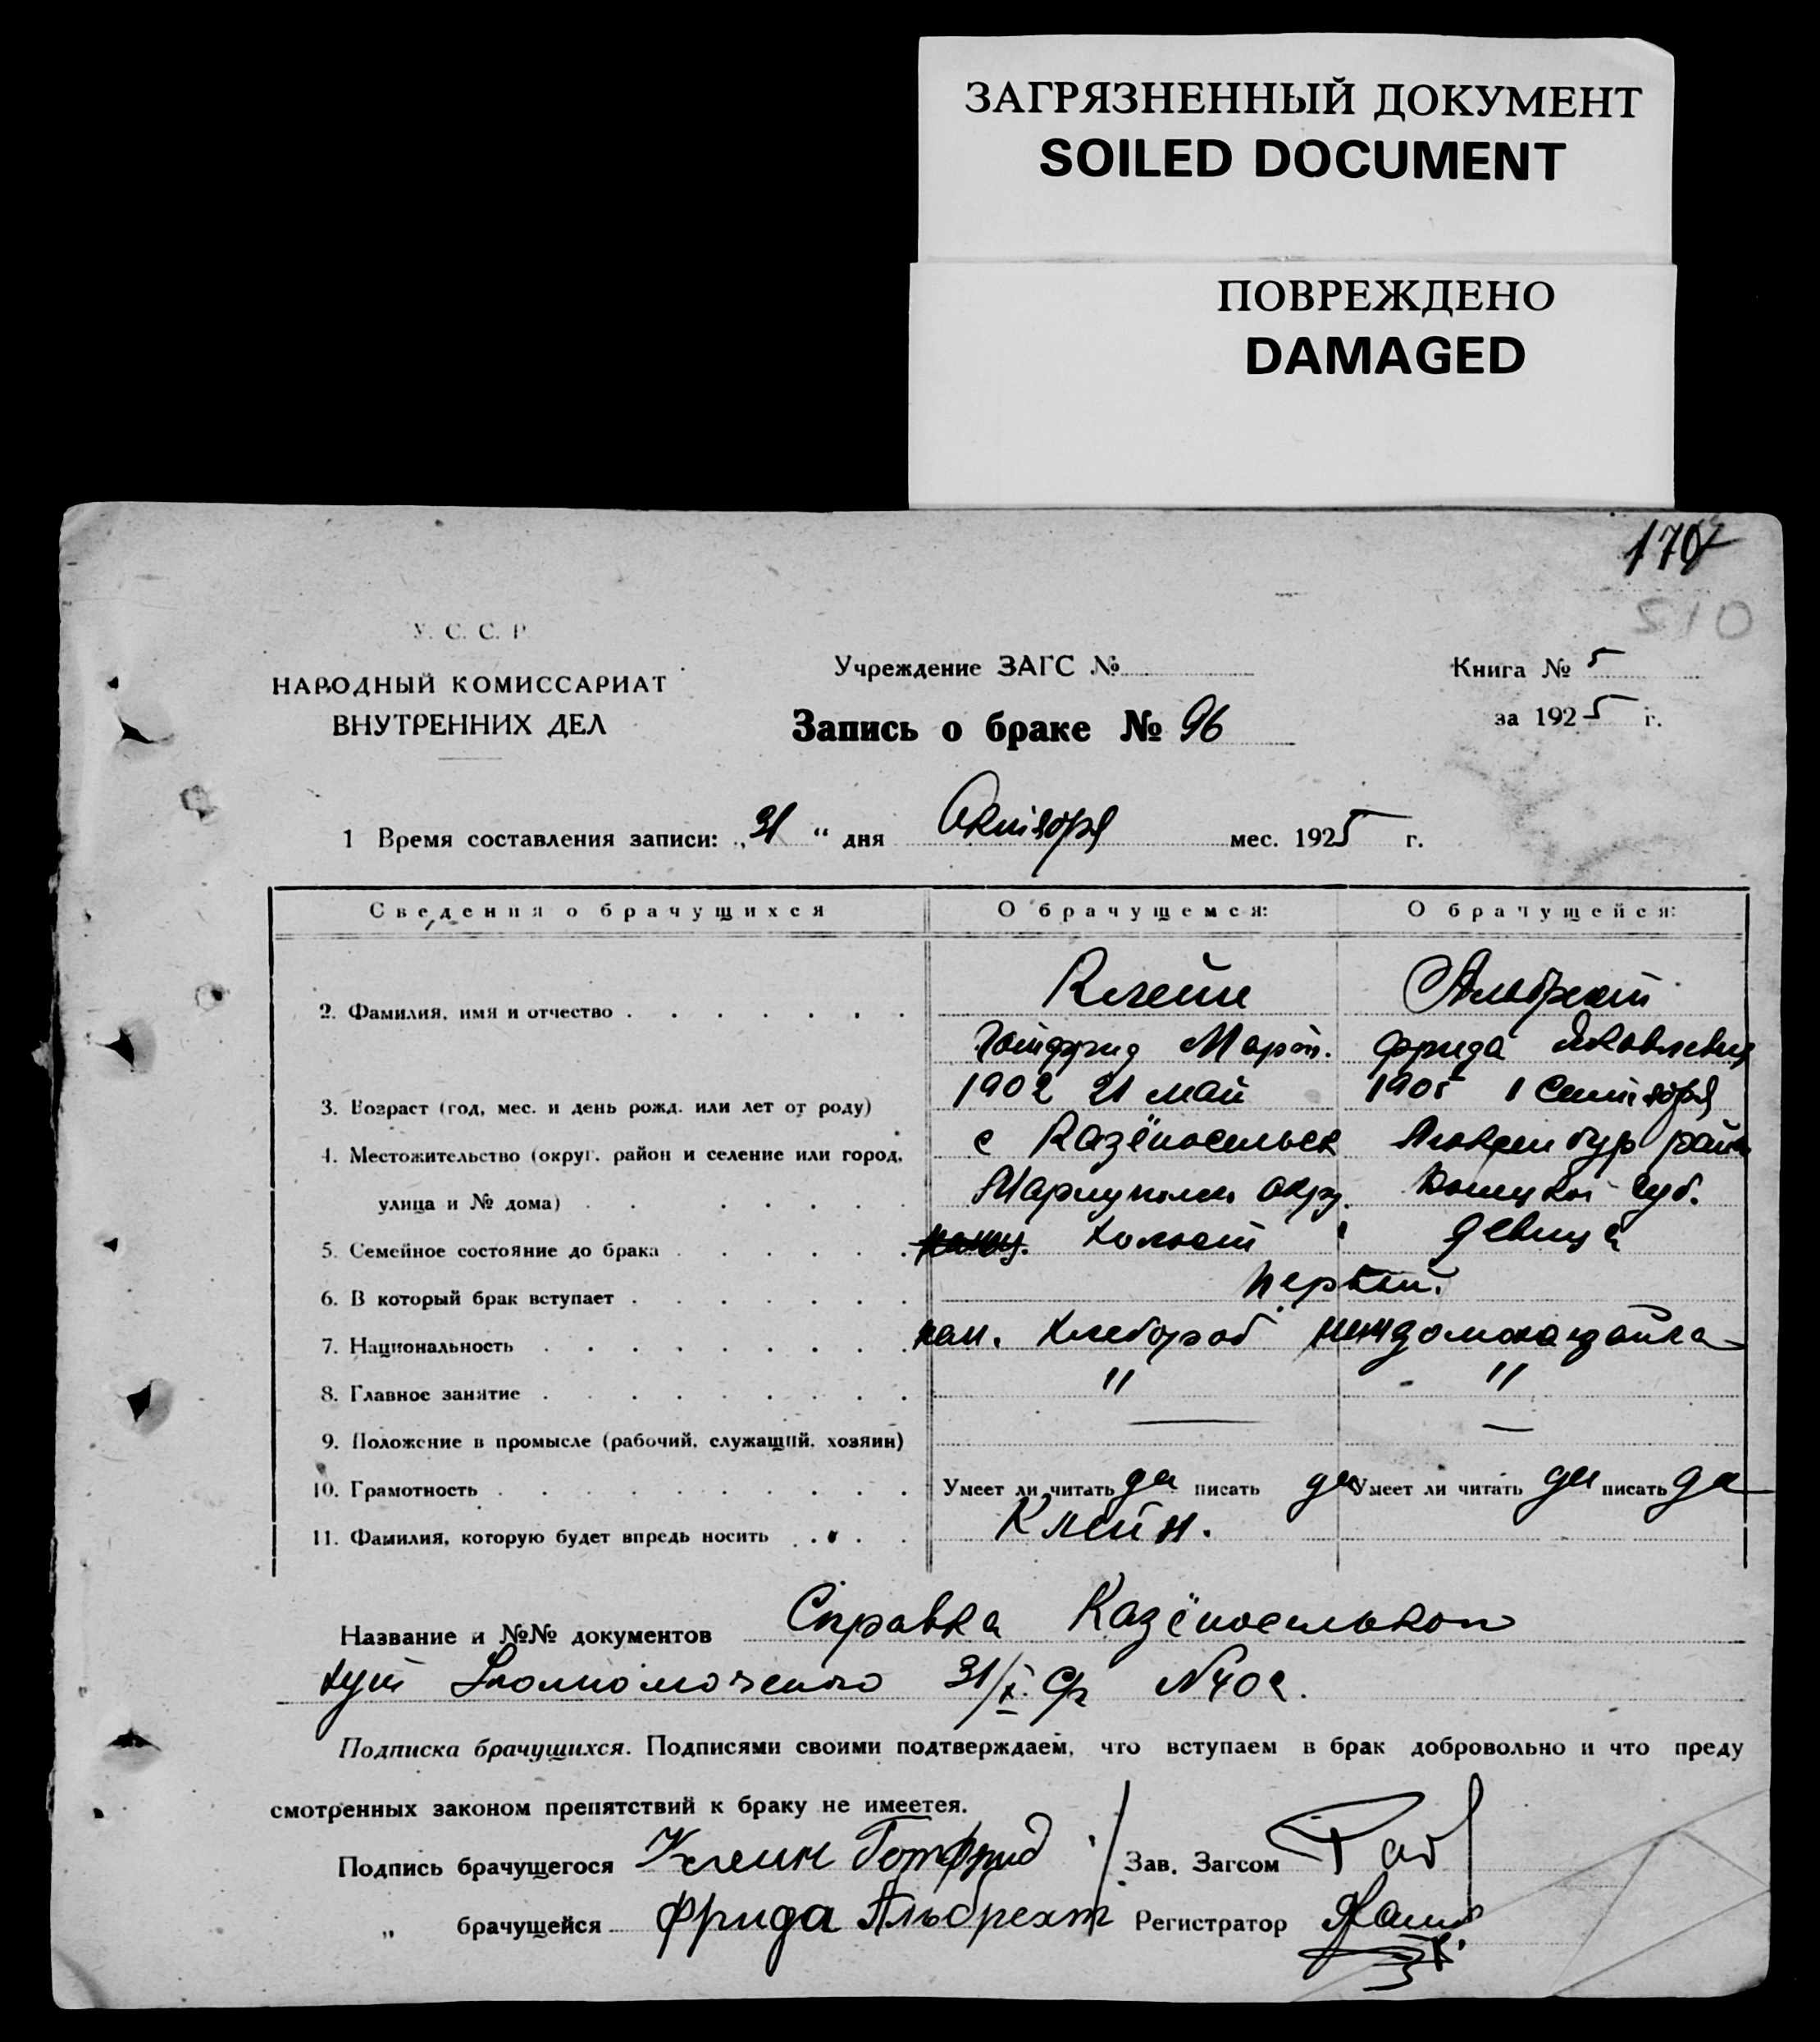 ЗАГРЯЗНЕННЫЙ ДОКУМЕНТ
SOILED DOCUMENT
ПОВРЕЖДЕНО
DAMAGED
170
S10
У. С. С. Р.
НАРОДНЫЙ КОМИССАРИАТ
ВНУТРЕННИХ ДЕЛ
Учреждение ЗАГС №
Книга № 5
за 1925 г.
Запись о браке № 96
1 Время составления записи: „31“ дня Октября мес. 1925 г.
Сведения о брачущихся О брачущемся: О брачущейся:
2. Фамилия, имя и отчество Клейн Альбрехт
Готфрид Март. Фрида Яковлевна
3. Возраст (год, мес. и день рожд. или лет от роду) 1902 21 май 1905 1 Сентября
4. Местожительство (округ, район и селение или город, с Казёносельск Люксембур район
улица и № дома) Мариуполь округ. Донецкой губ.
5. Семейное состояние до брака холост девица
6. В который брак вступает первый.
7. Национальность нем. хлебороб нем домохозяйка
8. Главное занятие " "
9. Положение в промысле (рабочий, служащий, хозяин) — —
10. Грамотность Умеет ли читать да писать да Умеет ли читать да писать да
11. Фамилия, которую будет впредь носить Клейн.
Название и №№ документов Справка Казёносельского
31/X. № 402.
Подписка брачущихся. Подписями своими подтверждаем, что вступаем в брак добровольно и что преду
смотренных законом препятствий к браку не имеется.
Подпись брачущегося Клейн Готфрид Зав. Загсом
„ брачущейся Фрида Альбрехт Регистратор